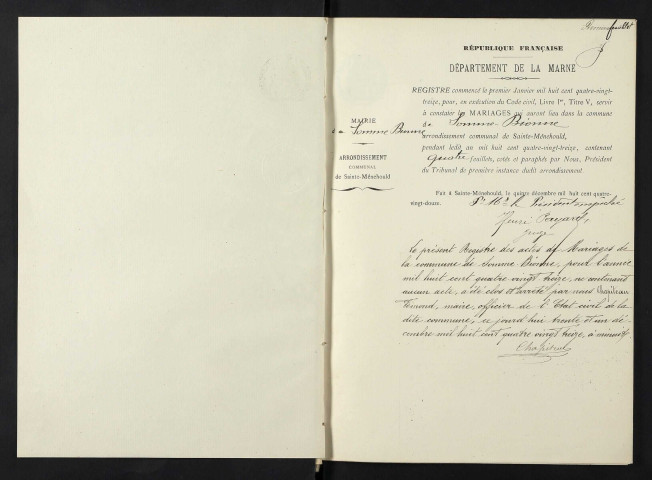 feuillet
RÉPUBLIQUE FRANÇAISE
DÉPARTEMENT DE LA MARNE
MAIRIE
de Somme Bionne
ARRONDISSEMENT
COMMUNAL
de Sainte-Ménehould
REGISTRE commencé le premier Janvier mil huit cent quatre-vingt-
treize, pour, en exécution du Code civil, Livre Ier, Titre V, servir
à constater les MARIAGES qui auront lieu dans la commune
de Somme-Bionne
arrondissement communal de Sainte-Ménehould,
pendant ledit an mil huit cent quatre-vingt-treize, contenant
quatre feuillets, cotés et paraphés par Nous, Président
du Tribunal de première instance dudit arrondissement.
Fait à Sainte-Ménehould, le quinze décembre mil huit cent quatre-
vingt-douze.
Pr Mr le Président empêché
Henri
juge
Le présent Registre des actes de Mariages de
la commune de Somme Bionne, pour l'année
mil huit cent quatre vingt treize, ne contenant
aucun acte, a été clos et arrêté par nous
maire, officier de l'Etat civil de la
dite commune, ce jourd'hui trente et un dé
cembre mil huit cent quatre vingt treize, à minuit